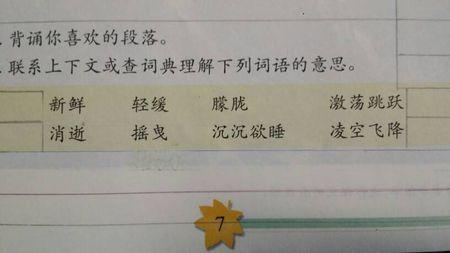 .背诵你喜欢的段落。
.联系上下文或查词典理解下列词语的意思。
新鲜 轻缓 朦胧 激荡跳跃
消逝 摇曳 沉沉欲睡 凌空飞降
7